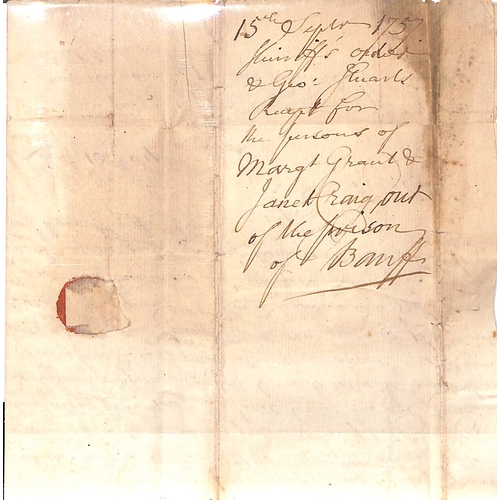 15th Septr 1757
Shirriff's order
& Geo: Stuarts
Recept for
the persons of
Margt Grant &
Janet Craig out
of the prison
of Banff